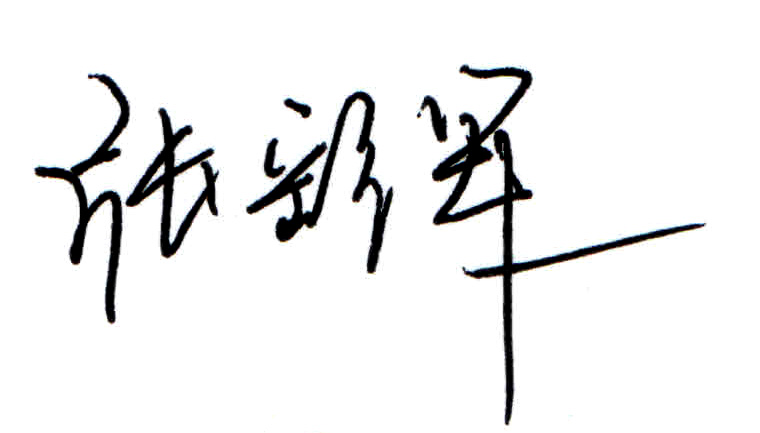 张新军